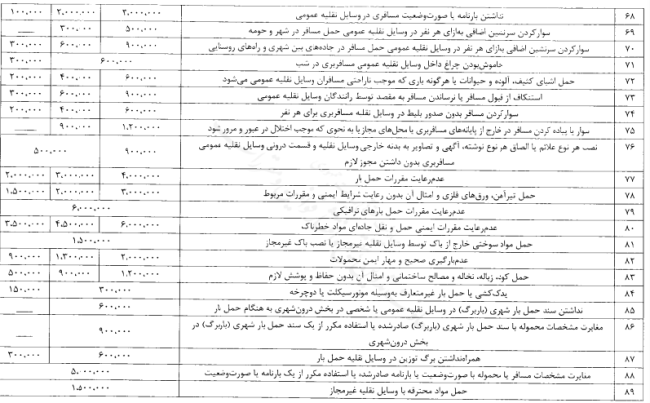 ۶۸ نداشتن بارنامه یا صورت‌وضعیت مسافری در وسایل نقلیه عمومی ۲.۰۰۰.۰۰۰ ۲.۰۰۰.۰۰۰ ۱۰۰.۰۰۰
۶۹ سوارکردن سرنشین اضافی به‌ازای هر نفر در وسایل نقلیه عمومی حمل مسافر در شهر و حومه ۵۰۰.۰۰۰ ۳۰۰.۰۰۰ ——
۷۰ سوارکردن سرنشین اضافی به‌ازای هر نفر در وسایل نقلیه عمومی حمل مسافر در جاده‌های بین شهری و راه‌های روستایی ۹۰۰.۰۰۰ ۶۰۰.۰۰۰ ۳۰۰.۰۰۰
۷۱ خاموش‌بودن چراغ داخل وسایل نقلیه عمومی مسافربری در شب ۶۰۰.۰۰۰ ۳۰۰.۰۰۰
۷۲ حمل اشیای کثیف، آلوده و حیوانات یا هرگونه باری که موجب ناراحتی مسافران وسایل نقلیه عمومی می‌شود ۶۰۰.۰۰۰ ۴۰۰.۰۰۰ ۲۰۰.۰۰۰
۷۳ استنکاف از قبول مسافر یا نرساندن مسافر به مقصد توسط رانندگان وسایل نقلیه عمومی ۹۰۰.۰۰۰ ۶۰۰.۰۰۰ ۳۰۰.۰۰۰
۷۴ سوارکردن مسافر بدون صدور بلیط در وسایل نقلیه مسافربری برای هر نفر ۶۰۰.۰۰۰ ۴۰۰.۰۰۰ ۲۰۰.۰۰۰
۷۵ سوار یا پیاده کردن مسافر در خارج از پایانه‌های مسافربری یا محل‌های مجاز یا به نحوی که موجب اختلال در عبور و مرور شود ۱.۲۰۰.۰۰۰ ۹۰۰.۰۰۰ ——
۷۶ نصب هر نوع علائم یا الصاق هر نوع نوشته، آگهی و تصاویر به بدنه خارجی وسایل نقلیه و قسمت درونی وسایل نقلیه عمومی مسافربری بدون داشتن مجوز لازم ۹۰۰.۰۰۰ ۵۰۰.۰۰۰
۷۷ عدم‌رعایت مقررات حمل بار ۴.۰۰۰.۰۰۰ ۳.۰۰۰.۰۰۰ ۲.۰۰۰.۰۰۰
۷۸ حمل تیرآهن، ورق‌های فلزی و امثال آن بدون رعایت شرایط ایمنی و مقررات مربوط ۳.۰۰۰.۰۰۰ ۲.۰۰۰.۰۰۰ ۱.۵۰۰.۰۰۰
۷۹ عدم‌رعایت مقررات حمل بارهای ترافیکی ۶.۰۰۰.۰۰۰
۸۰ عدم‌رعایت مقررات ایمنی حمل و نقل جاده‌ای مواد خطرناک ۶.۰۰۰.۰۰۰ ۴.۵۰۰.۰۰۰ ۳.۵۰۰.۰۰۰
۸۱ حمل مواد سوختی خارج از باک توسط وسایل نقلیه غیرمجاز یا نصب باک غیرمجاز ۱.۵۰۰.۰۰۰
۸۲ عدم‌بارگیری صحیح و مهار ایمن محمولات ۲.۰۰۰.۰۰۰ ۱.۳۰۰.۰۰۰ ۹۰۰.۰۰۰
۸۳ حمل کود، زباله، نخاله و مصالح ساختمانی و امثال آن بدون حفاظ و پوشش لازم ۱.۲۰۰.۰۰۰ ۹۰۰.۰۰۰ ۵۰۰.۰۰۰
۸۴ یدک‌کشی یا حمل بار غیرمتعارف به‌وسیله موتورسیکلت یا دوچرخه ۳۰۰.۰۰۰ ۱۵۰.۰۰۰
۸۵ نداشتن سند حمل بار شهری (باربرگ) در وسایل نقلیه عمومی یا شخصی در بخش درون‌شهری به هنگام حمل بار ۶۰۰.۰۰۰ ——
۸۶ مغایرت مشخصات محموله با سند حمل بار شهری (باربرگ) صادرشده یا استفاده مکرر از یک سند حمل بار شهری (باربرگ) در بخش درون‌شهری ۹۰۰.۰۰۰ ——
۸۷ همراه‌نداشتن برگ توزین در وسایل نقلیه حمل بار ۶۰۰.۰۰۰ ۳۰۰.۰۰۰
۸۸ مغایرت مشخصات مسافر یا محموله با صورت‌وضعیت یا بارنامه صادرشده، یا استفاده مکرر از یک بارنامه یا صورت‌وضعیت ۵.۰۰۰.۰۰۰
۸۹ حمل مواد محترقه با وسایل نقلیه غیرمجاز ۱.۵۰۰.۰۰۰